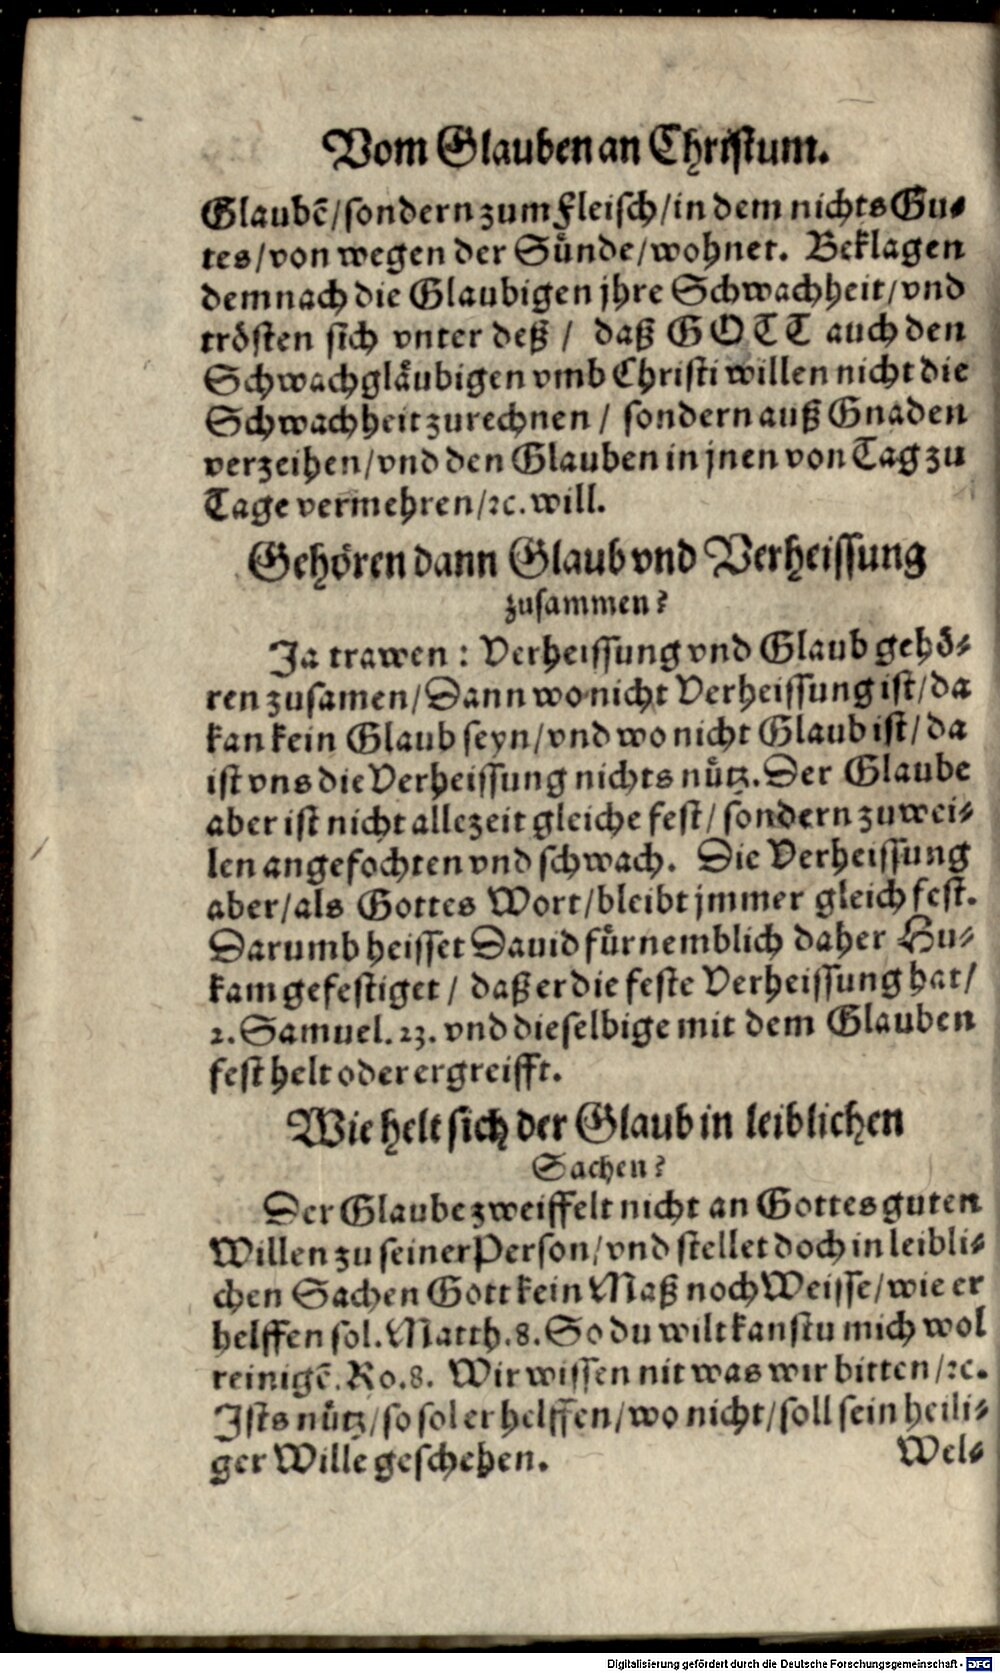 Vom Glauben an Christum.
Glaubē/sondern zum Fleisch/in dem nichts Gu⸗
tes/von wegen der Sünde/wohnet. Beklagen
demnach die Glaubigen jhre Schwachheit/vnd
trösten sich vnter deß / daß GOTT auch den
Schwachgläubigen vmb Christi willen nicht die
Schwachheit zurechnen / sondern auß Gnaden
verzeihen/vnd den Glauben in jnen von Tag zu
Tage vermehren/ꝛc. will.
Gehören dann Glaub vnd Verheissung
zusammen?
Ja trawen : Verheissung vnd Glaub gehö⸗
ren zusamen/Dann wo nicht Verheissung ist/da
kan kein Glaub seyn/vnd wo nicht Glaub ist/da
ist vns die Verheissung nichts nütz. Der Glaube
aber ist nicht allezeit gleiche fest/sondern zuwei⸗
len angefochten vnd schwach. Die Verheissung
aber/als Gottes Wort/bleibt jmmer gleich fest.
Darumb heisset Dauid fürnemblich daher Hu⸗
kam gefestiget / daß er die feste Verheissung hat/
2. Samuel. 23. vnd dieselbige mit dem Glauben
fest helt oder ergreifft.
Wie helt sich der Glaub in leiblichen
Sachen?
Der Glaube zweiffelt nicht an Gottes guten
Willen zu seiner Person/vnd stellet doch in leibli⸗
chen Sachen Gott kein Maß noch Weisse/wie er
helffen sol. Matth. 8. So du wilt kanstu mich wol
reinigē. Ro. 8. Wir wissen nit was wir bitten/ꝛc.
Ists nütz/so sol er helffen/wo nicht/soll sein heili⸗
ger Wille geschehen.
Wel⸗
Digitalisierung gefördert durch die Deutsche Forschungsgemeinschaft - DFG